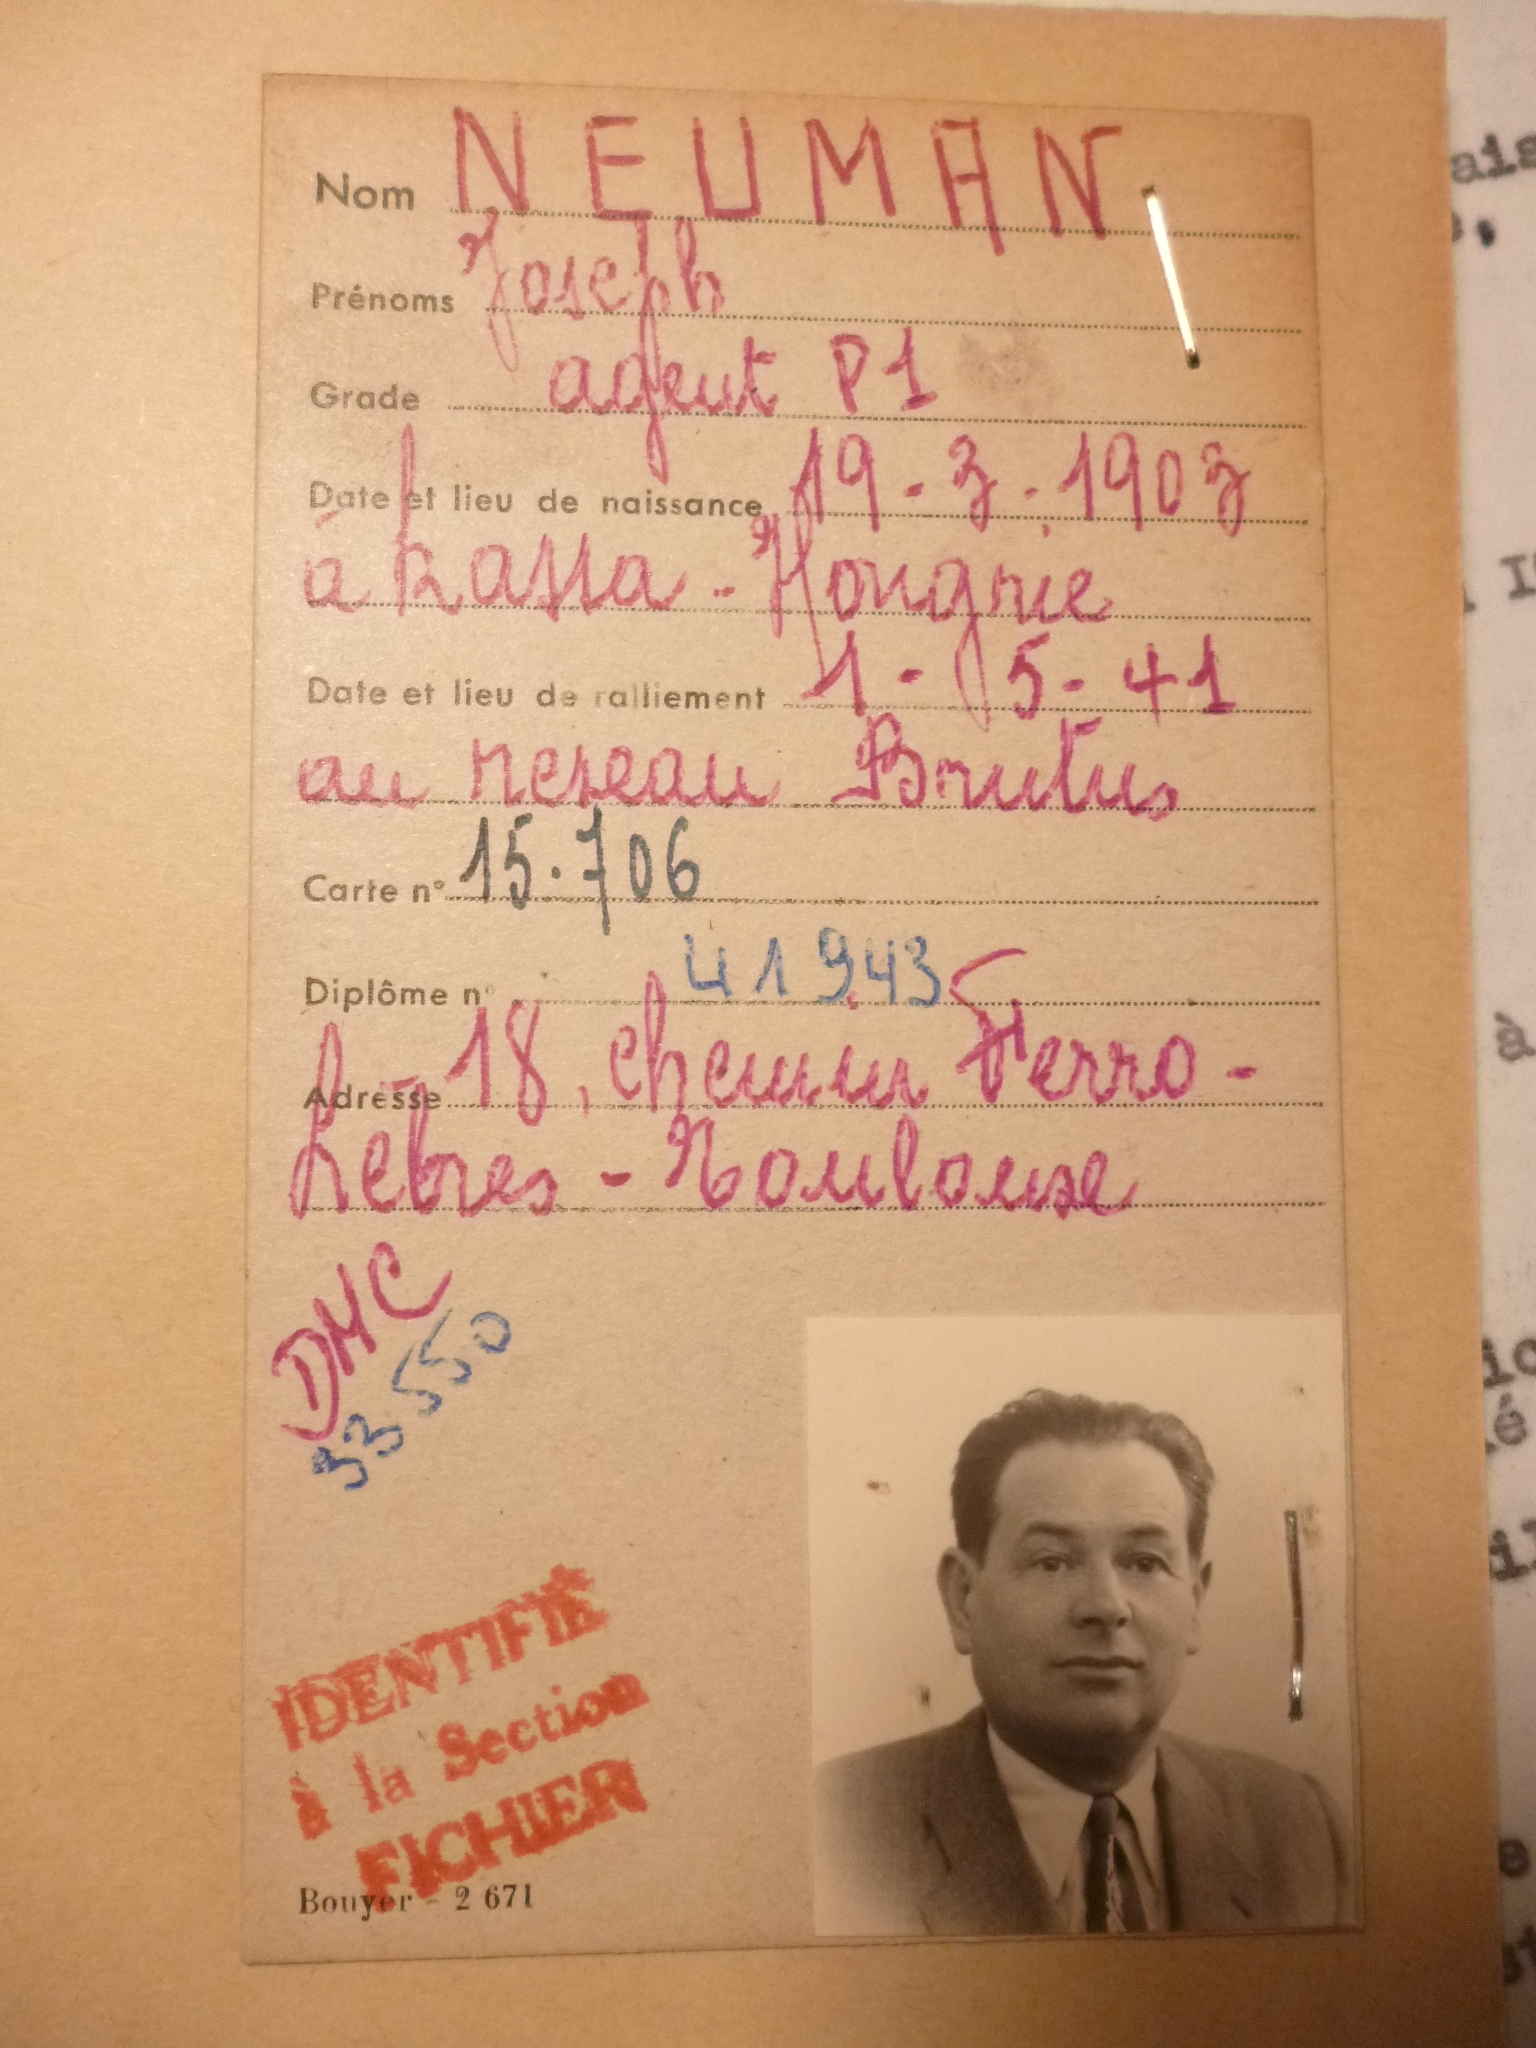 Nom NEUMAN
Prénoms Joseph
Grade agent P1
Date et lieu de naissance 19-3-1903
à Kassa - Hongrie
Date et lieu de ralliement 1-5-41
au reseau Brutus
Carte n° 15.706
Diplôme n° 41943
Adresse 18, chemin Ferro-
Lebres - Toulouse
DMC
33550
IDENTIFIÉ
à la Section
FICHIER
Bouyer - 2 671
ais
à